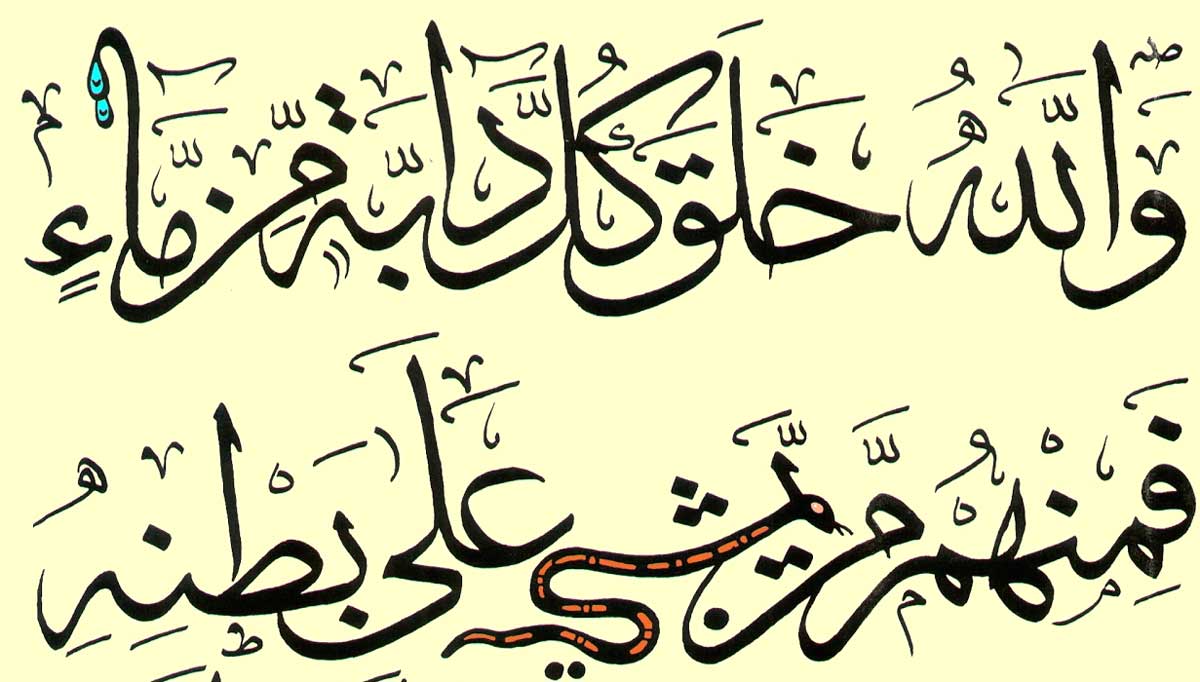 وَاللَّهُ خَلَقَ كُلَّ دَابَّةٍ مِّن مَّاءٍ
فَمِنْهُم مَّن يَمْشِي عَلَىٰ بَطْنِهِ